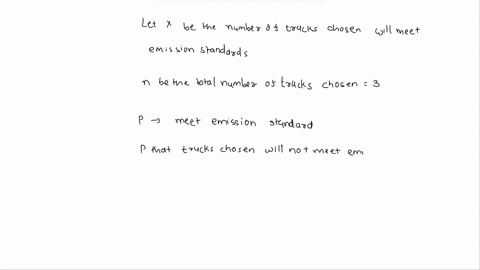 Let X be the number of trucks chosen will meet
emission standards
n be the total number of trucks chosen = 3
P → meet emission standard
P that trucks chosen will not meet emi